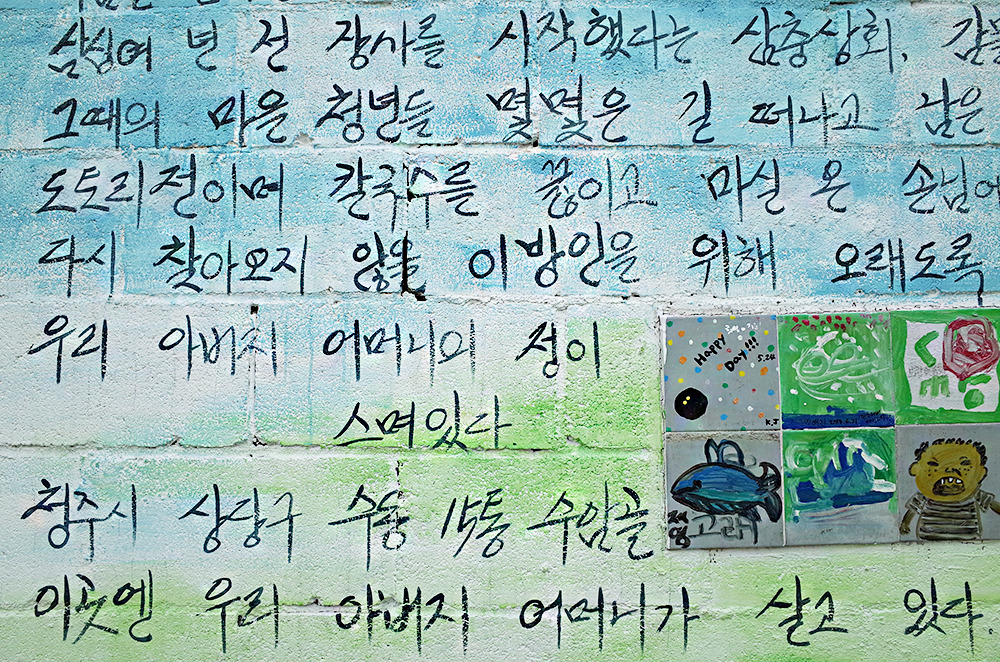 삼십여 년 전 장사를 시작했다는 삼충상회,
그때의 마을 청년들 몇몇은 길 떠나고 남은
도토리전이며 칼국수를 끓이고 마실 온 손님
다시 찾아오지 않을 이방인을 위해 오래도록
우리 아버지 어머니의 정이
스며있다.
HAPPY
DAY!!!
5.24
K.J
고래
청주시 상당구 수동 15통 수암골
이곳엔 우리 아버지 어머니가 살고 있다.